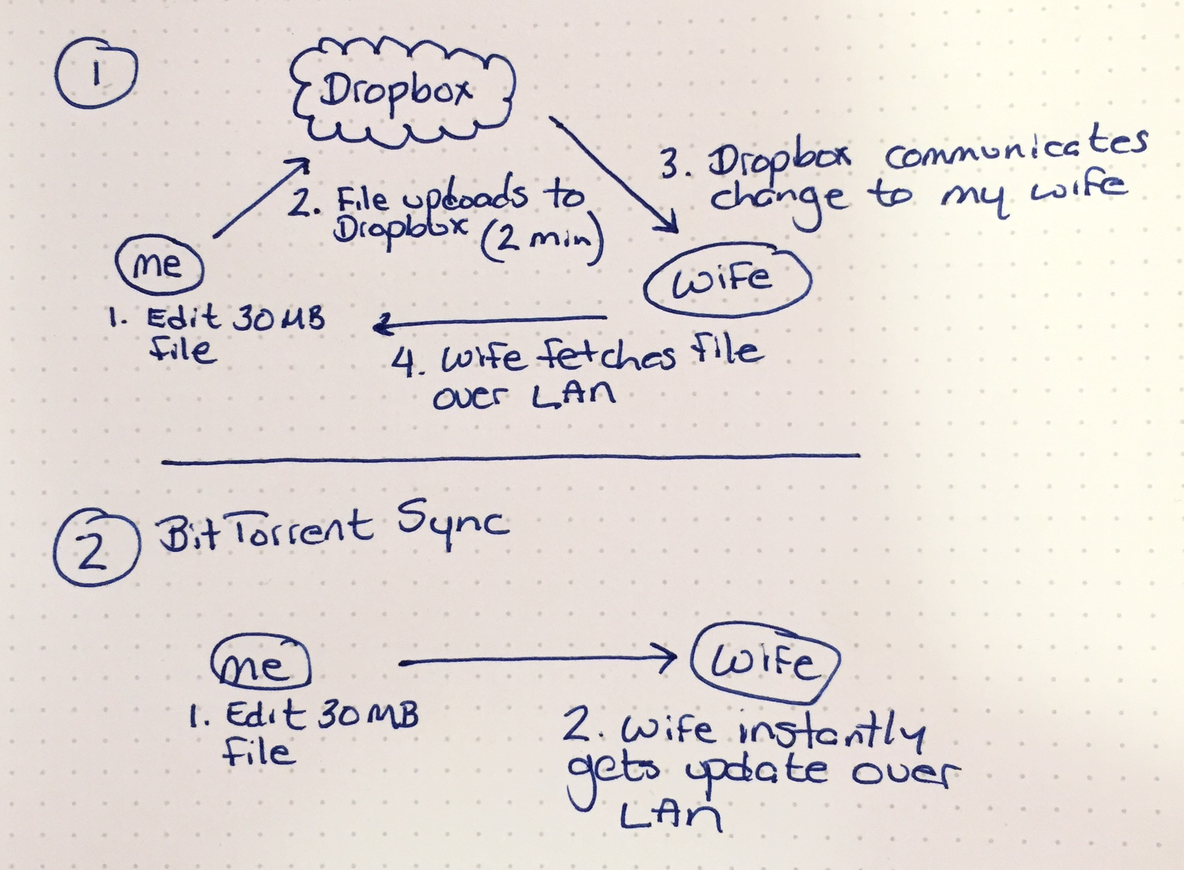 1
Dropbox
3. Dropbox communicates
change to my wife
2. File uploads to
Dropbox (2 min)
me
wife
1. Edit 30MB
file
4. Wife fetches file
over LAN
2
BitTorrent Sync
me
wife
1. Edit 30MB
file
2. Wife instantly
gets update over
LAN